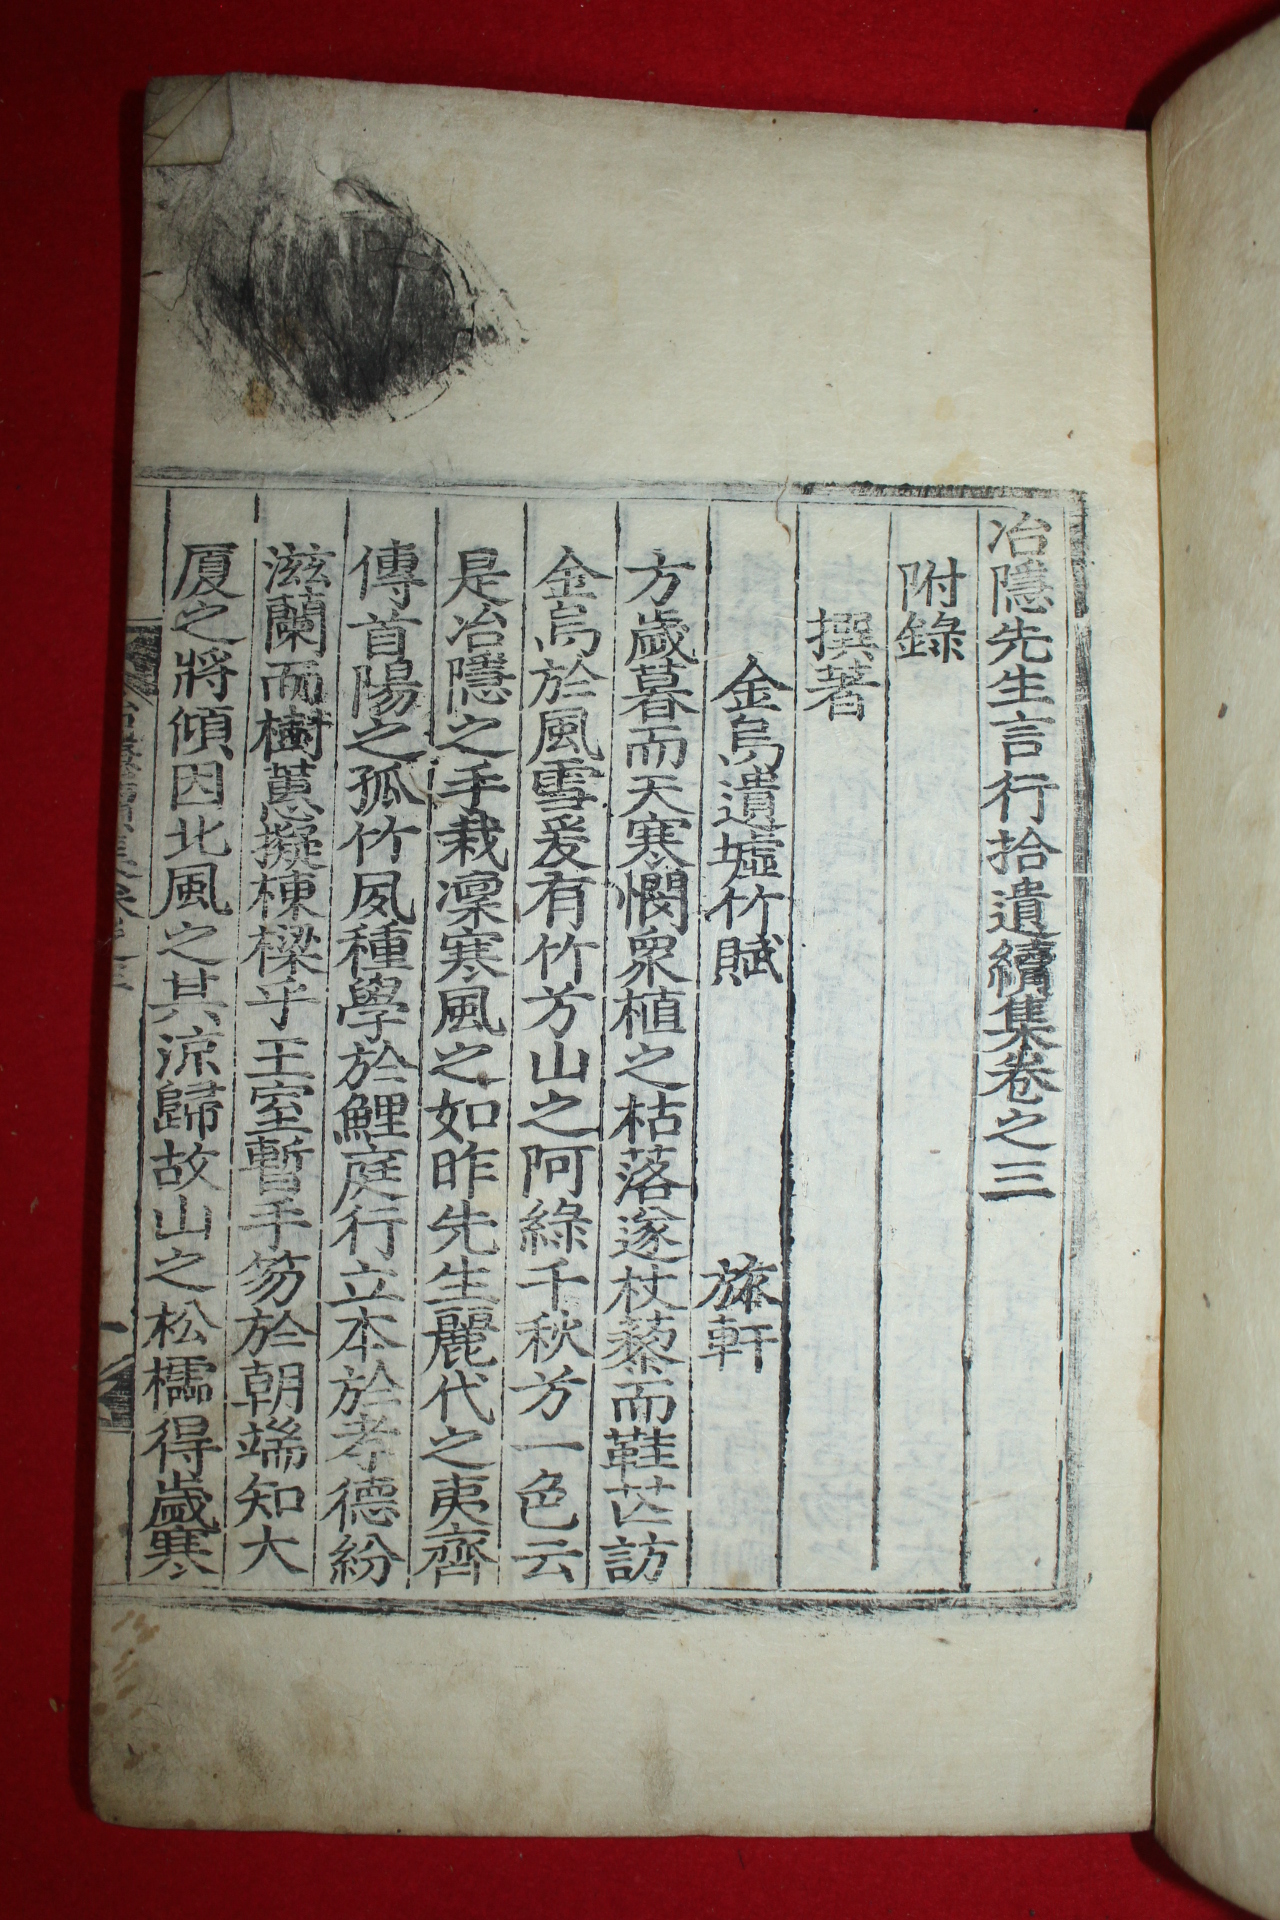 冶隱先生言行拾遺續集卷之三
附錄
撰著
金烏遺墟竹賦 旅軒
方歲暮而天寒憫衆植之枯落遂杖藜而鞋芒訪
金烏於風雪爰有竹兮山之阿綠千秋兮一色云
是冶隱之手栽凜寒風之如昨先生麗代之夷齊
傳首陽之孤竹夙種學於鯉庭行立本於孝德紛
滋蘭而樹蕙擬棟樑乎王室暫手笏於朝端知大
厦之將傾因北風之其涼歸故山之松檽得歲寒